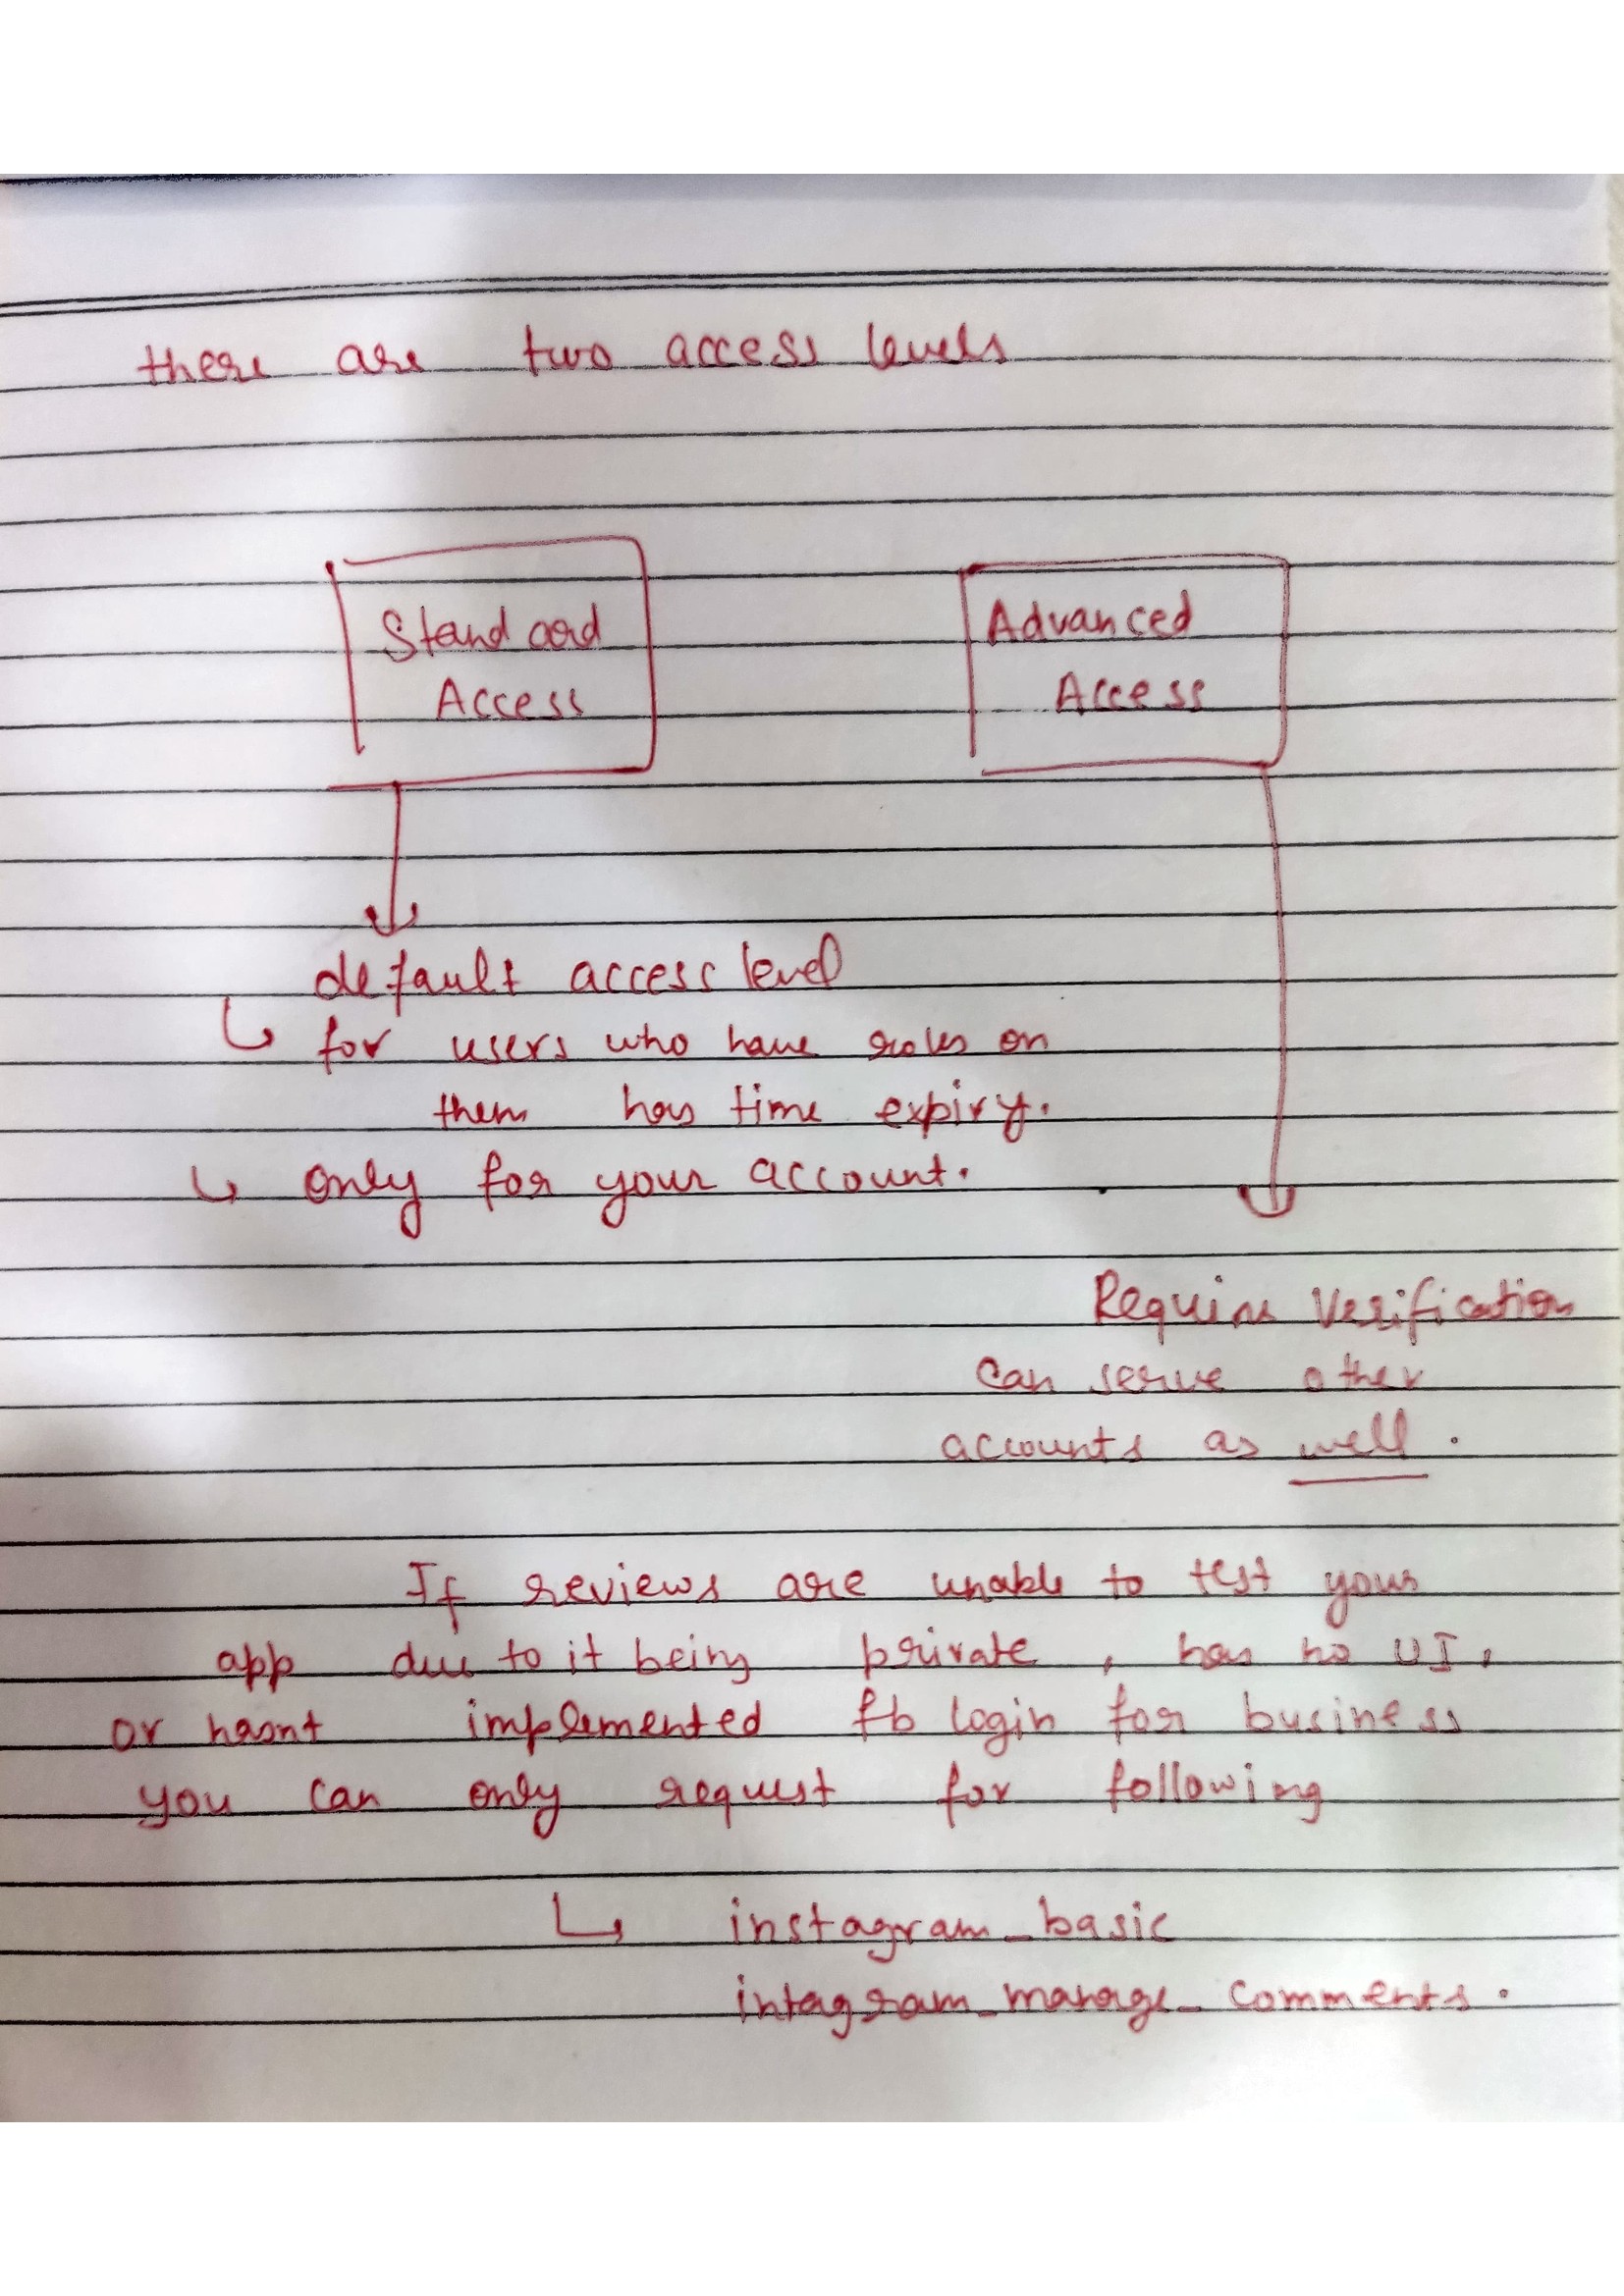 there are two access levels
Standard
Access
Advanced
Access
default access level
for users who have roles on
them has time expiry.
only for your account.
Require Verification
can serve other
accounts as well.
If reviews are unable to test your
app due to it being private, has no UI,
or hasnt implemented fb login for business
you can only request for following
instagram_basic
intagram_manage_comments.